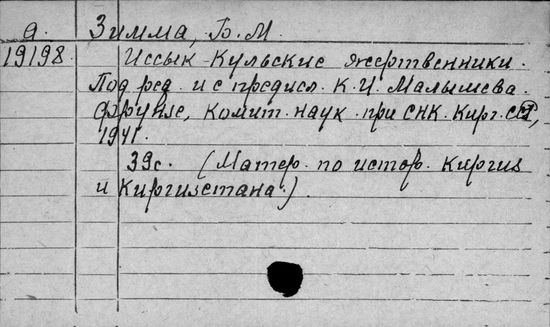 а. Зимма, Б. М.
19198 Иссык-Кульские жертвенники.
Под ред. и с предисл. К. И. Малышева.
Фрунзе, Комит. наук при СНК Кирг. ССР,
1941.
39 с. (Матер. по истор. киргиз
и Киргизстана.)